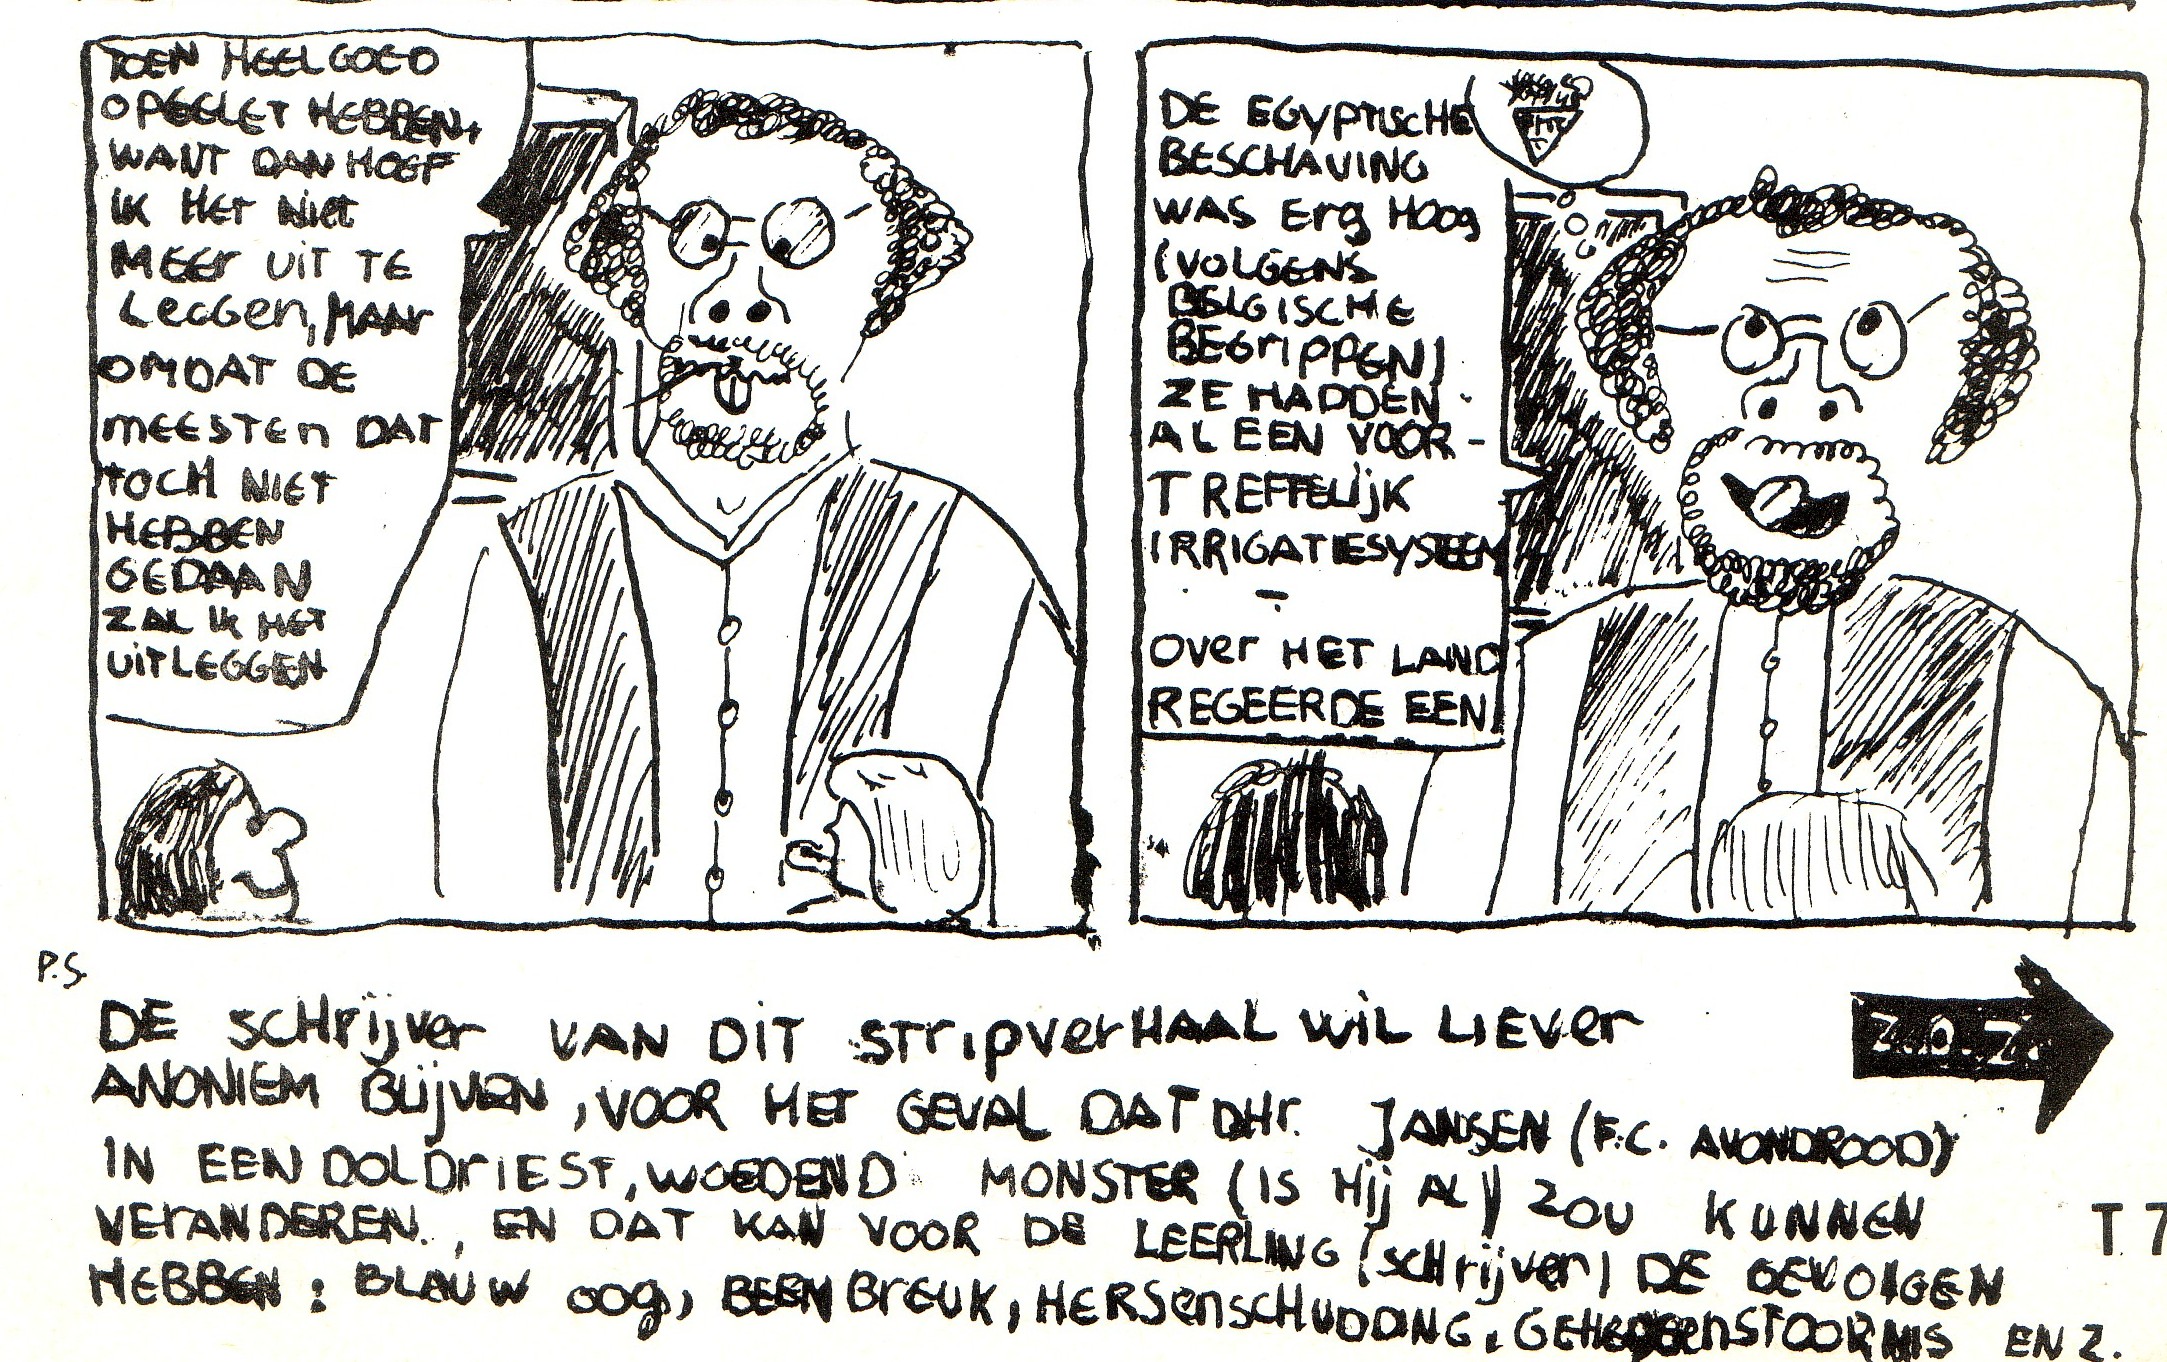 TOEN HEEL GOED
OPGELET HEBBEN,
WANT DAN HOEF
IK HET NIET
MEER UIT TE
LEGGEN, MAAR
OMDAT DE
MEESTEN DAT
TOCH NIET
HEBBEN
GEDAAN
ZAL IK HET
UITLEGGEN
DE EGYPTISCHE
BESCHAVING
WAS ERG HOOG
(VOLGENS
BELGISCHE
BEGRIPPEN)
ZE HADDEN
AL EEN VOOR-
TREFFELIJK
IRRIGATIESYSTEEM
-
OVER HET LAND
REGEERDE EEN
P.S.
DE SCHRIJVER VAN DIT STRIPVERHAAL WIL LIEVER
ANONIEM BLIJVEN, VOOR HET GEVAL DAT DHR. JANSEN (F.C. AVONDROOD)
IN EEN DOLDRIEST, WOEDEND MONSTER (IS HIJ AL) ZOU KUNNEN
VERANDEREN., EN DAT KAN VOOR DE LEERLING (SCHRIJVER) DE GEVOLGEN
HEBBEN: BLAUW OOG, BEENBREUK, HERSENSCHUDDING, GEHEUGENSTOORNIS ENZ.
Z.O.Z.
T.7